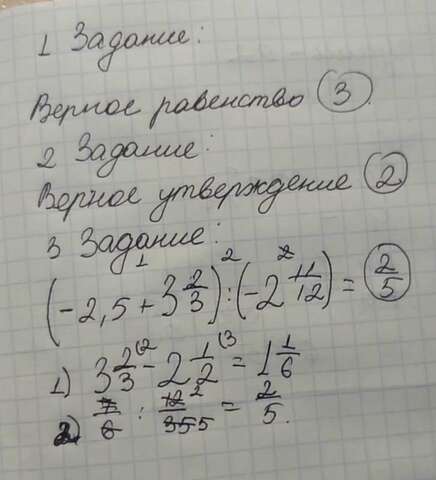 1 Задание:
Верное равенство 3.
2 Задание:
Верное утверждение 2
3 Задание:
(-2,5 + 3 2/3) : (-2 11/12) = 2/5
1) 3 2/3 - 2 1/2 = 1 1/6
2) 7/6 : 12/35 = 2/5.